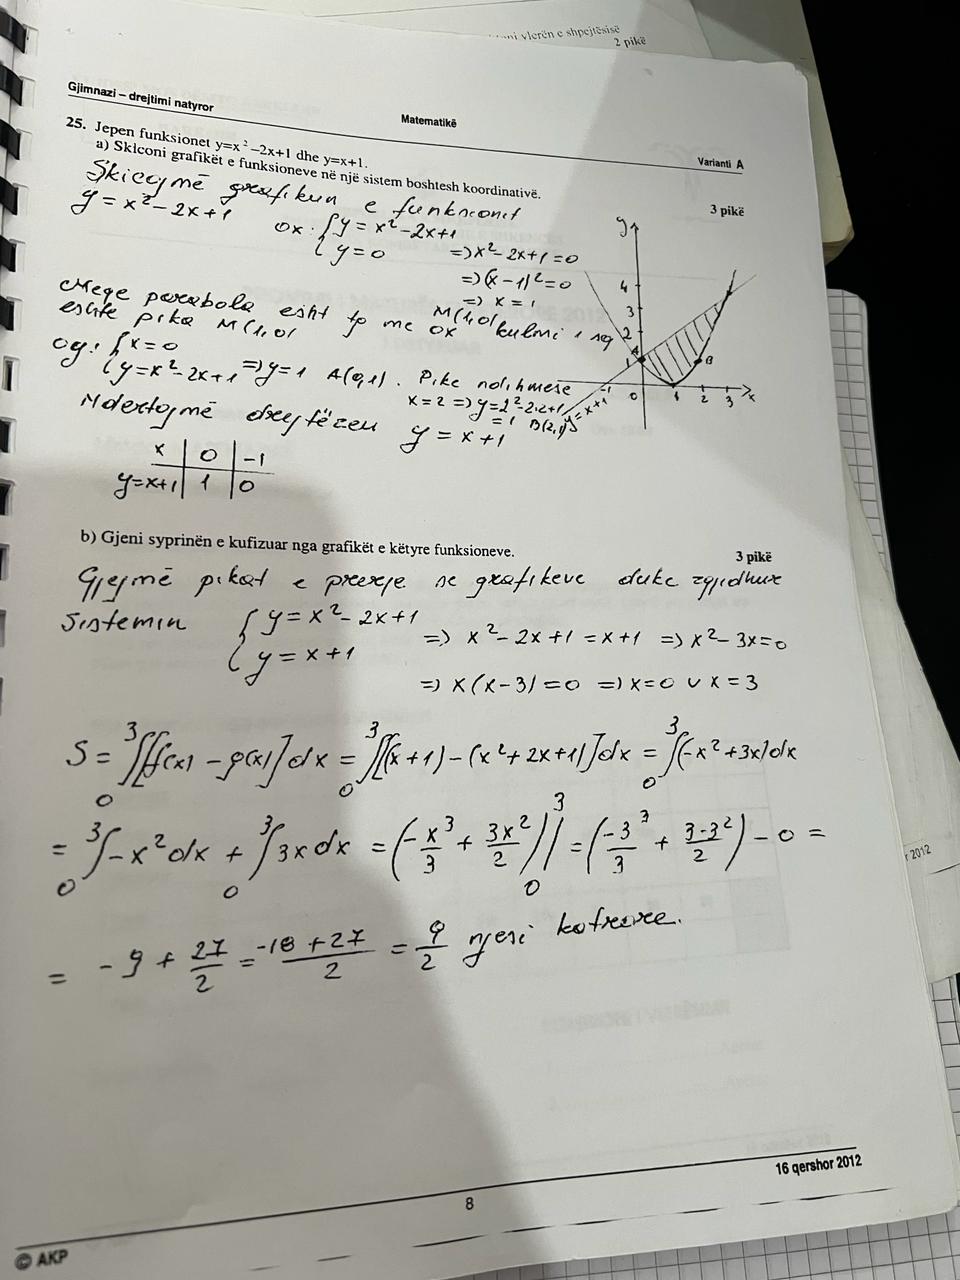 vlerën e shpejtësisë
2 pikë
Gjimnazi – drejtimi natyror
Matematikë
Varianti A
25. Jepen funksionet y=x²–2x+1 dhe y=x+1.
a) Skiconi grafikët e funksioneve në një sistem boshtesh koordinativë.
3 pikë
Skicojmë grafikun e funksionit
y = x² - 2x+1
ox: { y = x² - 2x+1
y = 0
=> x² - 2x+1 = 0
=> (x - 1)² = 0
=> x = 1
Meqe parabola esht tp me ox M(1,0) kulmi i saj
eshte pika M(1,0)
oy: { x = 0
y = x² - 2x+1 => y = 1 A(0,1). Pike ndihmese
x = 2 => y = 2² - 2·2+1
= 1 B(2,1)
Ndertojmë drejtëzen y = x+1
x | 0 | -1
y=x+1 | 1 | 0
y
4
3
2
A
1
B
-1 0 1 2 3 x
y = x+1
b) Gjeni syprinën e kufizuar nga grafikët e këtyre funksioneve.
3 pikë
Gjejmë pikat e prerje se grafikeve duke zgjidhur
sistemin { y = x² - 2x+1
y = x+1
=> x² - 2x+1 = x+1 => x² - 3x = 0
=> x(x-3) = 0 => x=0 ∪ x = 3
S = ₀³∫[f(x) - g(x)]dx = ₀³∫[(x+1) - (x²+2x+1)]dx = ₀³∫(-x²+3x)dx
= ₀³∫-x²dx + ₀³∫3xdx = (-x³/3 + 3x²/2)|₀³ = (-3³/3 + 3·3²/2) - 0 =
= -9 + 27/2 = -18+27/2 = 9/2 njesi katrore.
r 2012
16 qershor 2012
8
© AKP